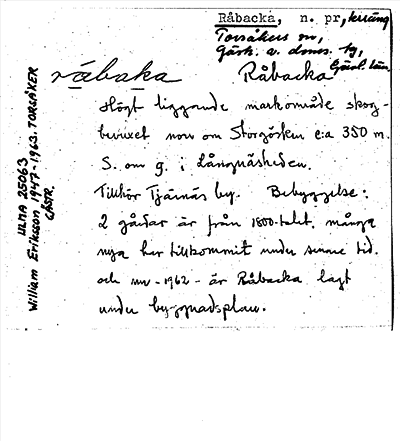 Råbacka, n. pr, terräng
Torsåkers sn,
Gästr. ö. doms. hg,
Gävl. län
råbaka Råbacka
Högt liggande markområde skog-
bevuxet norr om Storgösken c:a 350 m.
S. om g. i Långnäsheden.
Tillhör Tjärnäs by. Bebyggelse:
2 gårdar är från 1800-talet, många
nya har tillkommit under senare tid.
och nu -1962- är Råbacka lagt
under byggnadsplan.
ULMA 25063
William Eriksson 1947-1963. TORSÅKER
GÄSTR.